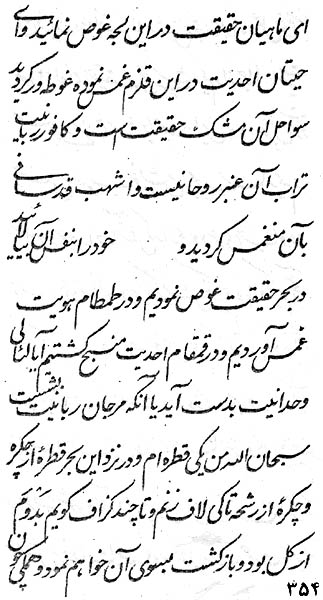 ای ماهیان حقیقت در این لجه غوص نمائید وای
حیتان احدیت در این قلزم غمس نموده غوطه ور گردید
سواحل آن مشک حقیقت است و کافور ربانیت
تراب آن عنبر روحانیست و اشهب قدسانی
بآن منغمس گردید و خود را بنفس آن بیالائید
در بحر حقیقت غوص نمودیم و در طمطام هویت
غمس آوردیم و در قمقام احدیت منسبح گشتیم آیا لئالی
وحدانیت بدست آید یا آنکه مرجان ربانیت بشکیبت
سبحان الله من یکی قطره ام و در نزد این بحر قطرهٔ از چکره
و چکرهٔ از رشحه تا کی لاف زنم و تا چند گزاف گویم بدوم
از کل بود و بازگشت بسوی آن خواهم نمود و همگی چون
۳۵۴